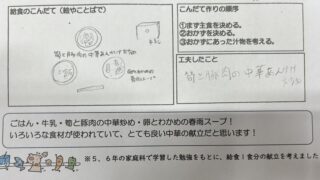 給食のこんだて（絵やことばで）
牛乳
筍と豚肉の中華あんかけ
こんだて作りの順序
①まず主食を決める。
②おかずを決める。
③おかずにあった汁物を考える。
工夫したこと
筍と豚肉の中華あんかけ
ごはん・牛乳・筍と豚肉の中華炒め・卵とわかめの春雨スープ！
いろいろな食材が使われていて、とても良い中華の献立だと思います！
※５、６年の家庭科で学習した勉強をもとに、給食１食分の献立を考えました